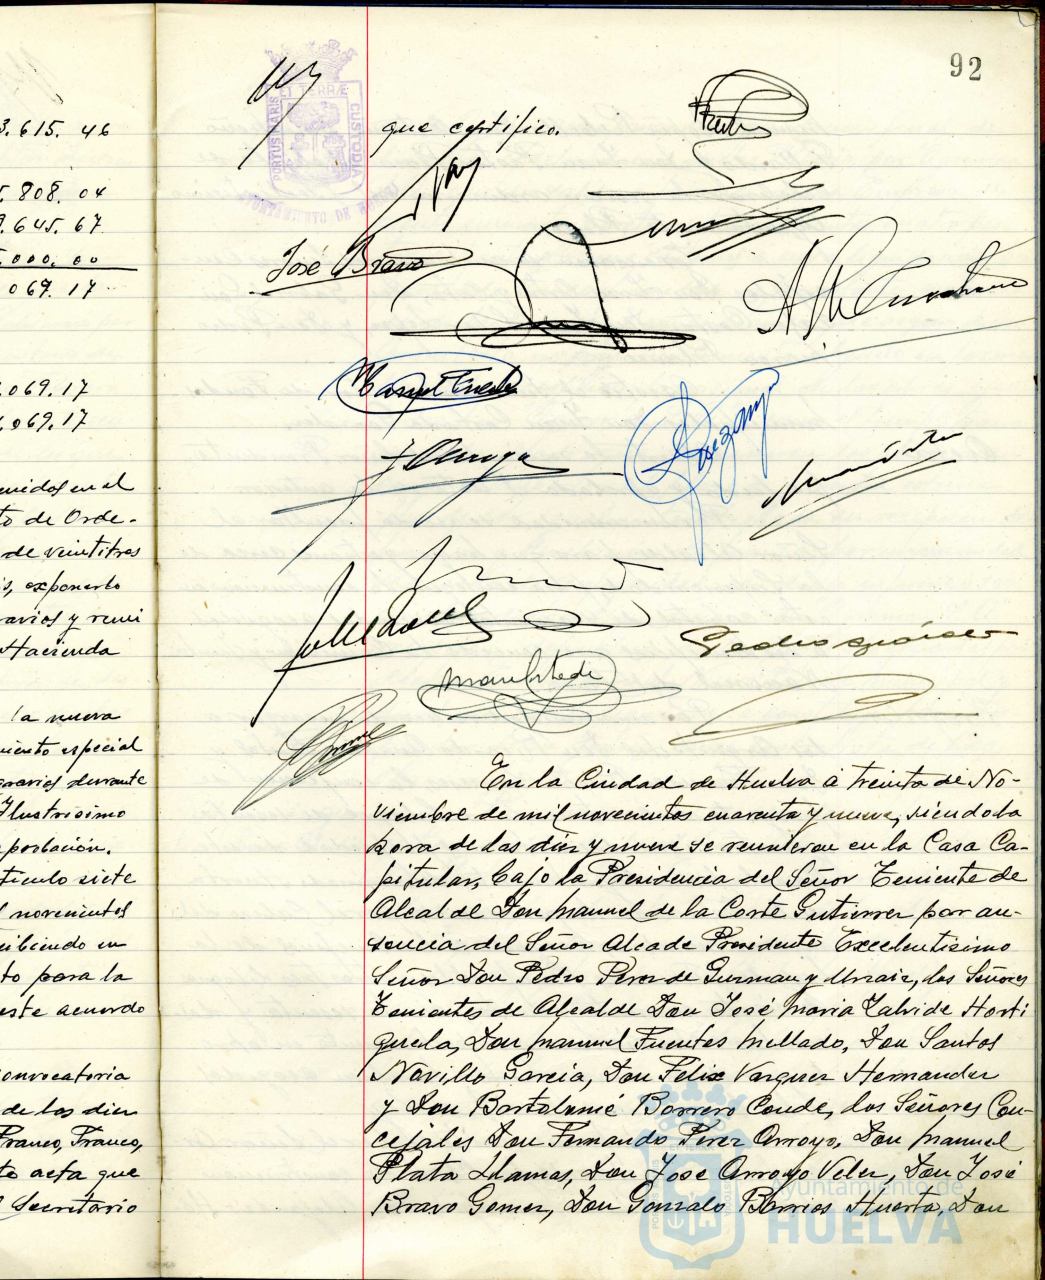 3.615.46
5.808.04
9.645.67
5.000.00
069.17
.069.17
.069.17
enidos en el
to de Orde-
de veintitres
s, exponerlo
ravios y remi
Hacienda
la nueva
miento especial
gravios durante
Ilustrisimo
probación.
tículo siete
l novecientos
cibiendo en
to para la
este acuerdo
onvocatoria
de las diez
Franco, Franco,
te acta que
Secretario
92
PORTUS MARIS ET TERRÆ CUSTODIA
AYUNTAMIENTO DE HUELVA
que certifico.
José Bravo
En la Ciudad de Huelva á treinta de No-
viembre de mil novecientos cuarenta y nueve, siendo la
hora de las diez y nueve se reunieron en la Casa Ca-
pitular, bajo la Presidencia del Señor Teniente de
Alcalde Don Manuel de la Corte Gutierrez por au-
sencia del Señor Alcade Presidente Excelentisimo
Señor Don Pedro Perez de Guzman y Urzaiz, los Señores
Tenientes de Alcalde Don José Maria Zalvide Horti
guela, Don Manuel Fuentes Mellado, Don Santos
Novillo Garcia, Don Félix Vazquez Hernandez
y Don Bartolomé Borrero Conde, los Señores Con-
cejales Don Fernando Perez Arroyo, Don Manuel
Plata Llamas, Don Jose Arroyo Velez, Don José
Bravo Gomez, Don Gonzalo Barrios Huerta, Don
Ayuntamiento de
HUELVA